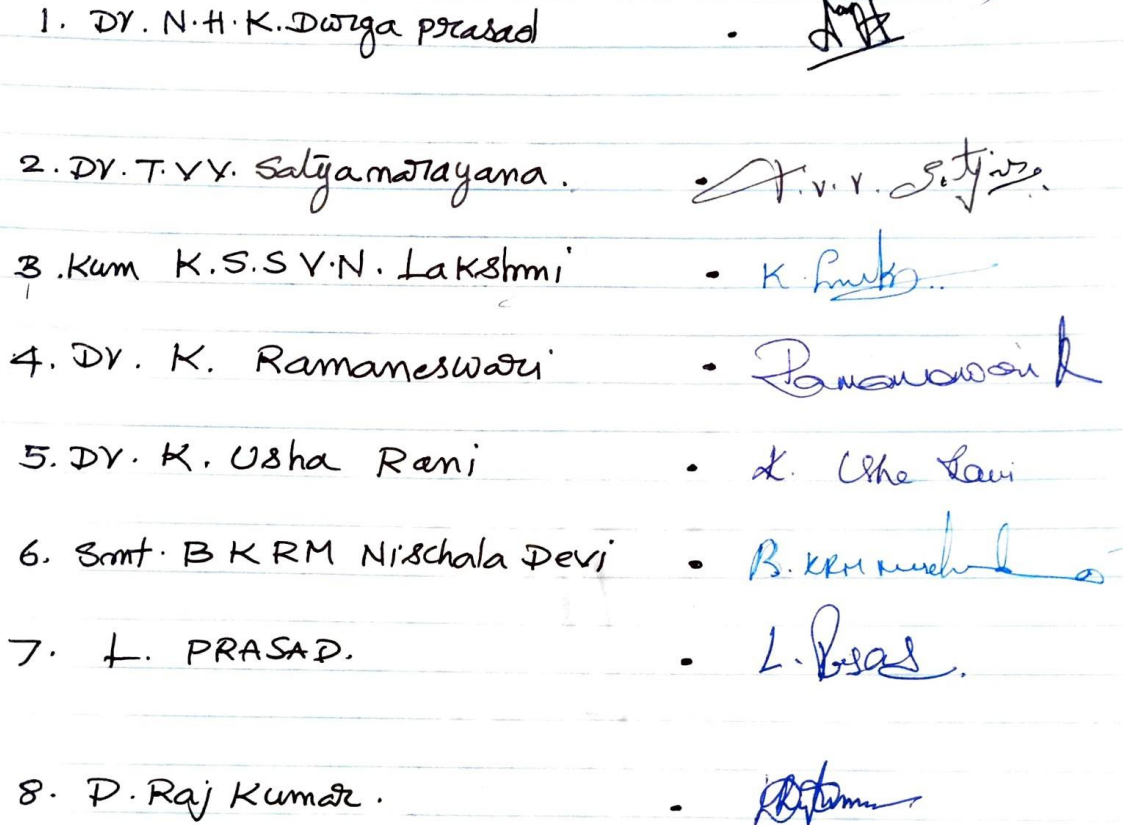 1. Dr. N.H.K. Durga prasad .
2. Dr. T. V.V. Satyanarayana . . T.v.v.
3. Kum K.S.S V.N. Lakshmi . K
4. Dr. K. Ramaneswari .
5. Dr. K. Usha Rani . K. Usha Rani
6. Smt. B K R M Nischala Devi . B. KRM
7. L. PRASAD. . L. Prasad.
8. D. Raj Kumar. .